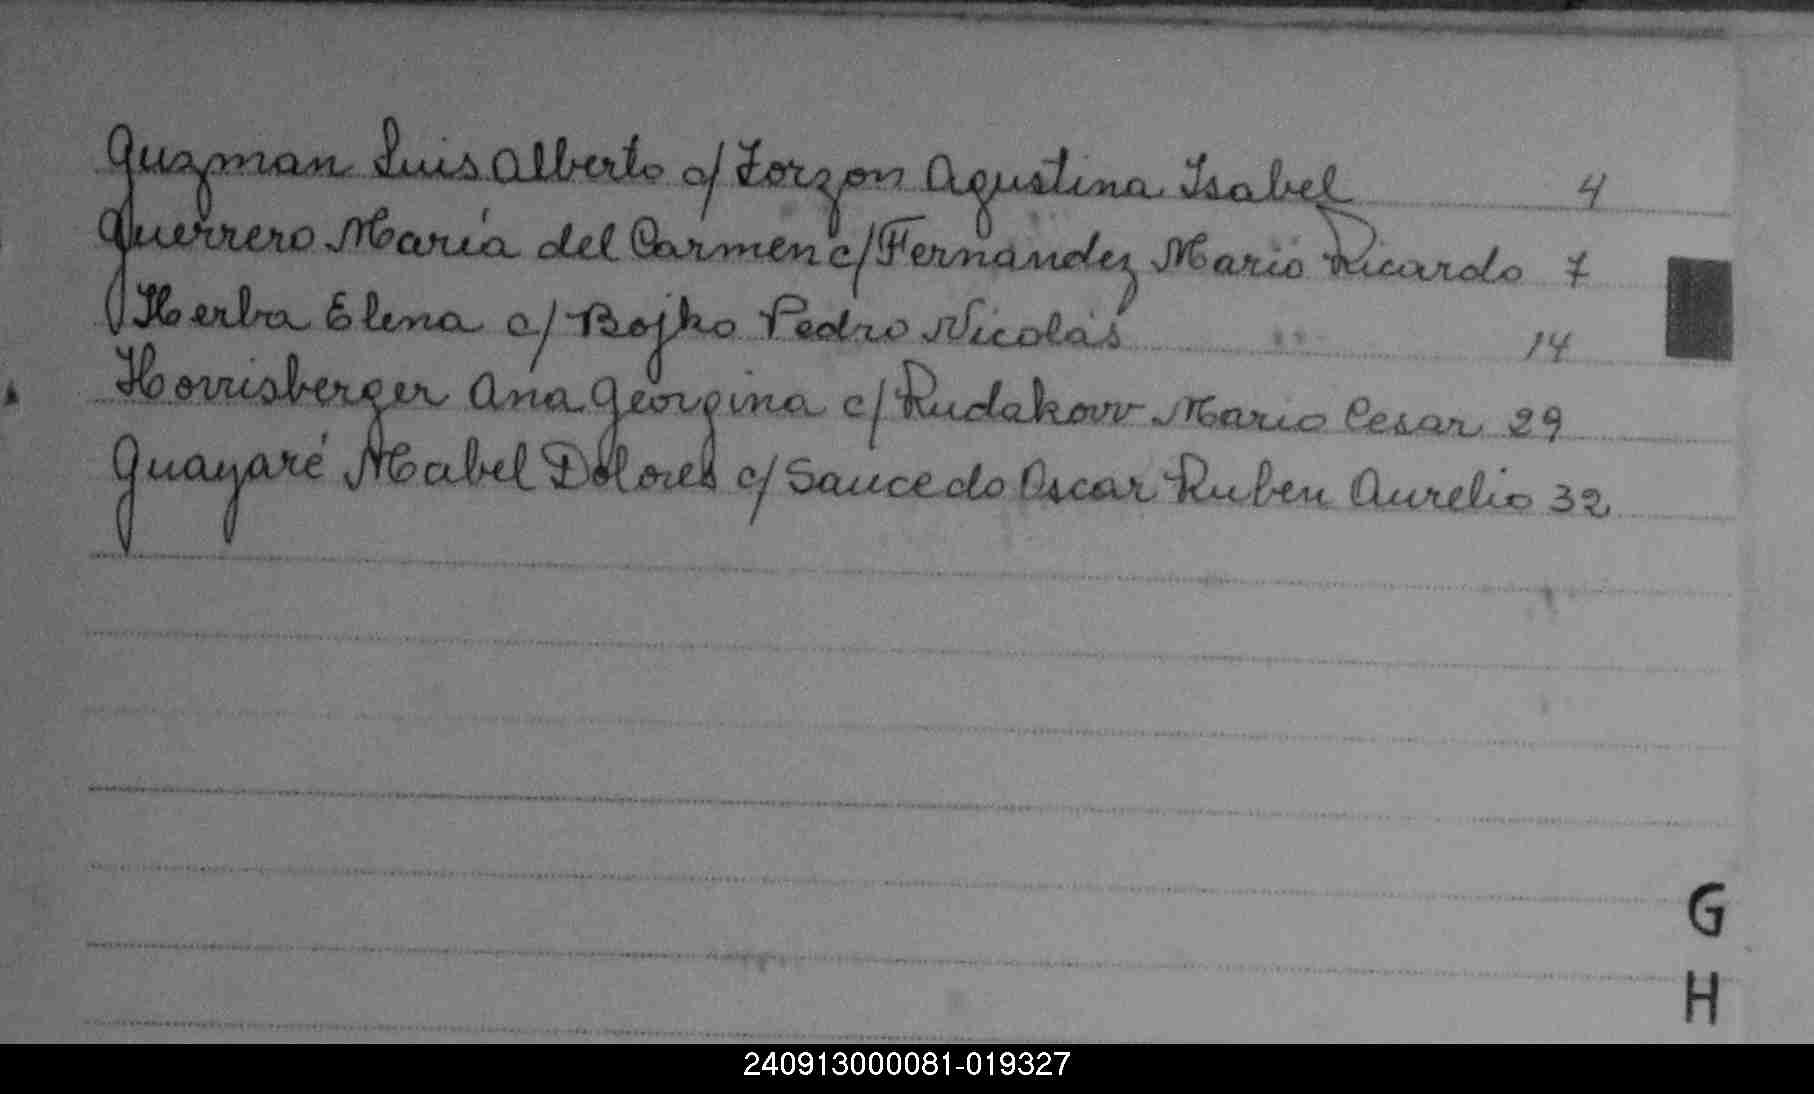 Guzman Luis Alberto c/ Zorzon Agustina Isabel 4
Guerrero María del Carmen c/ Fernandez Mario Ricardo 7
Herba Elena c/ Bojko Pedro Nicolás 14
Horrisberger Ana Georgina c/ Rudakovv Mario Cesar 29
Guayaré Mabel Dolores c/ Saucedo Oscar Ruben Aurelio 32
G
H
240913000081-019327